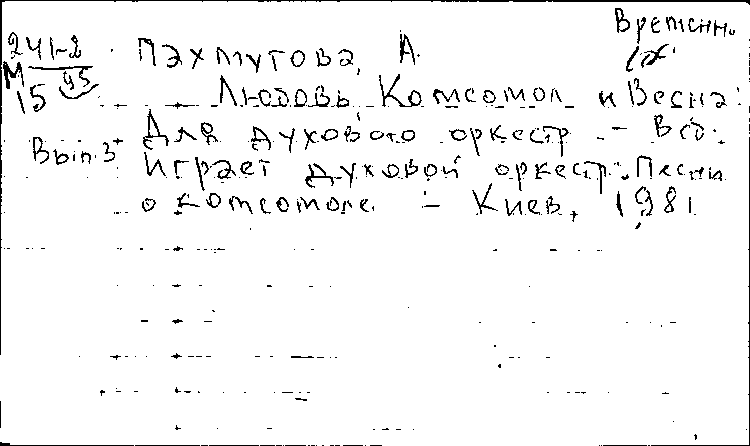 Временн.
241-2
95
М
15
Пахмутова, А.
Любовь, Комсомол и Весна:
Для духового оркестр – В сб.:
Вып. 3
Играет духовой оркестр. Песни
о комсомоле. – Киев, 1981